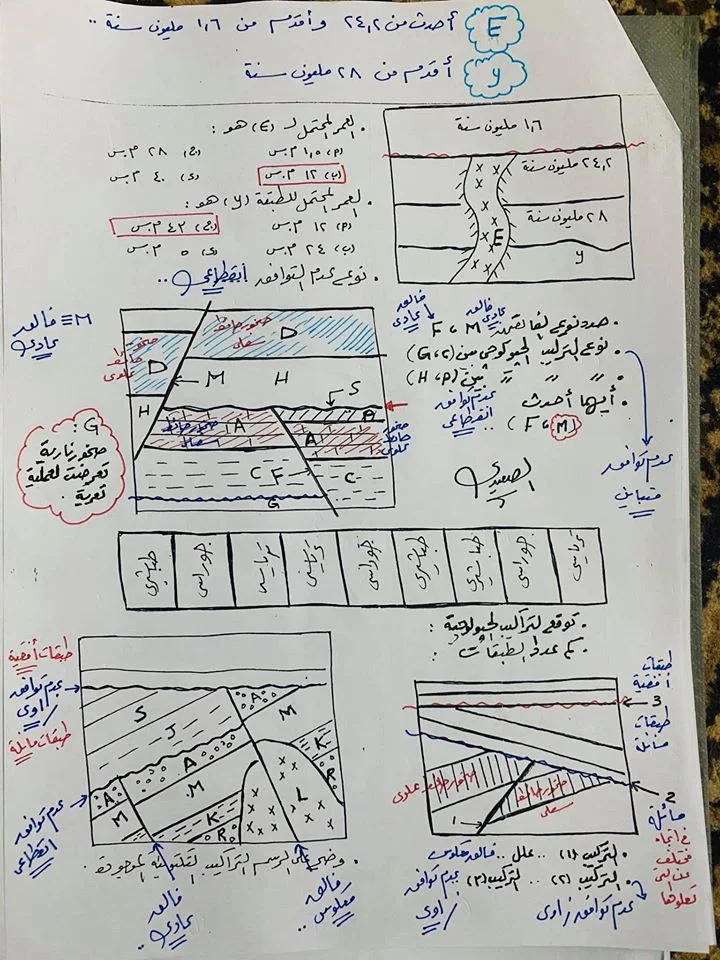 E أحدث من ٢٤,٢ وأقدم من ١,٦ مليون سنة ..
y أقدم من ٢٨ مليون سنة
. العمر المحتمل لـ (E) هو :
(أ) ١,٥ م.س (ج) ٢٨ م.س
(ب) ١٢ م.س (د) ٤٠ م.س
. العمر المحتمل للطبقة (y) هو :
(أ) ١٢ م.س (ج) ٤٣ م.س
(ب) ٢٤ م.س (د) ٥ م.س
. نوع عدم التوافق انقطاعي ..
١,٦ مليون سنة
٢٤,٢ مليون سنة
٢٨ مليون سنة
E
y
M ≡ فالق
عادي
صخور حائط
علوي
D
صخور حائط
سفلي
D
M
H
H
S
A
A
A
صخور حائط
علوي
C
F
C
G
G :
صخور نارية
تعرضت لعملية
تعرية .
فالق
عادي
فالق
عادي
. حدد نوع الفالقين M ، F
. نوع التركيب الجيولوجي بين (C ، G)
. " " " بين (A ، H)
عدم توافق
انقطاعي
. أيهما أحدث
(M ، F)
عدم توافق
متباين
الصعيدي
طباشيري
جوراسي
ترياسي
ترياسي
جوراسي
طباشيري
طباشيري
جوراسي
ترياسي
. توقع التراكيب الجيولوجية :
. كم عدد الطبقات :
طبقات أفقية
عدم توافق
زاوي
طبقات مائلة
عدم توافق
انقطاعي
S
J
A
M
A
M
K
R
A
M
K
R
L
. وضح على الرسم التراكيب التكتونية الموجودة .
فالق
عادي ..
فالق
معكوس ..
طبقات
أفقية
3
طبقات
مائلة
2
صخور حائط علوي
صخور حائط
سفلي
1
مائلة
في اتجاه
مختلف
عن التي
تعلوها
. التركيب (١) .. علل .. فالق معكوس
. التركيب (٢) .. التركيب (٣) عدم توافق
زاوي
عدم توافق زاوي